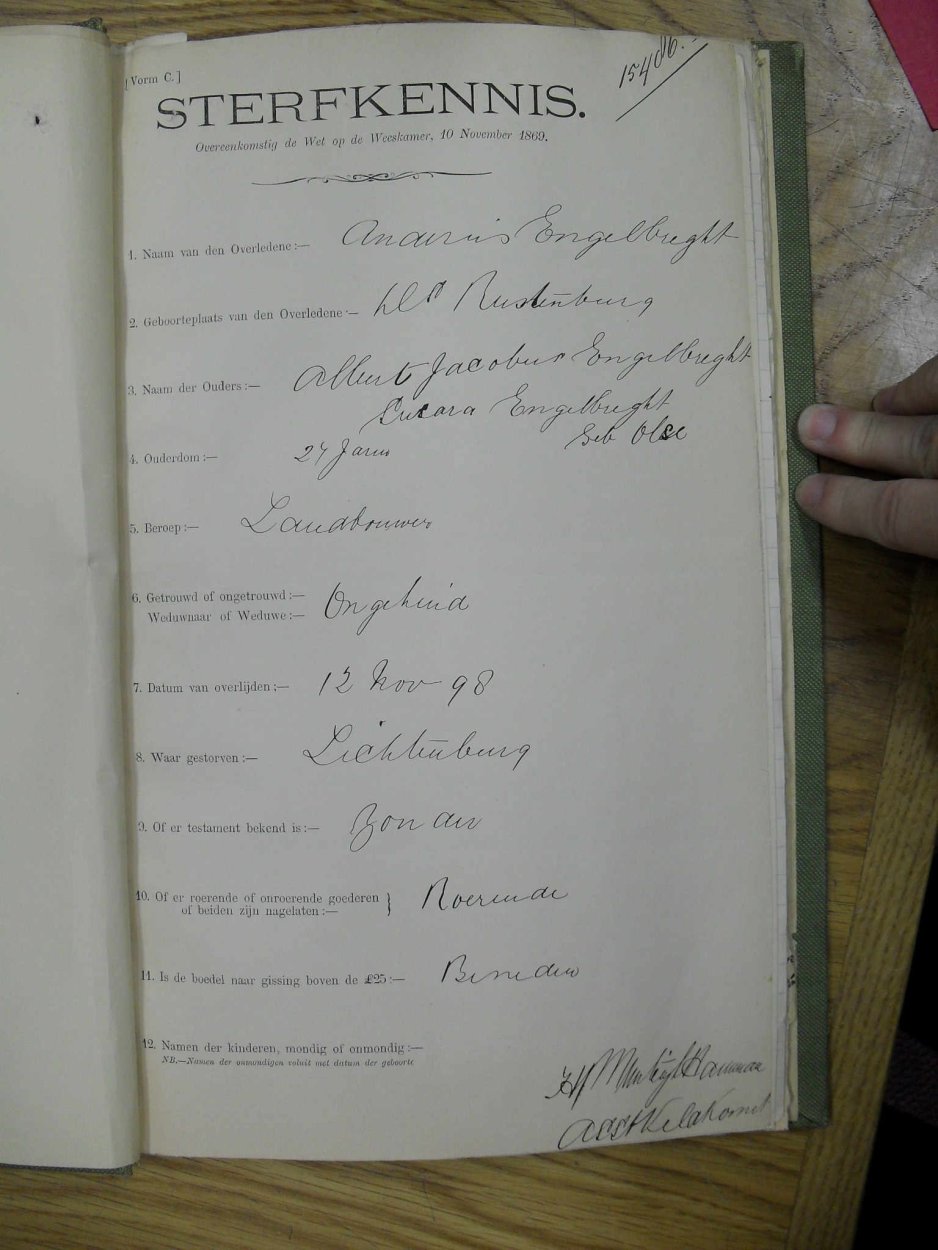 [Vorm C.]
15406.
STERFKENNIS.
Overeenkomstig de Wet op de Weeskamer, 10 November 1869.
1. Naam van den Overledene:— Andries Engelbreght
2. Geboorteplaats van den Overledene:— Rustenburg
3. Naam der Ouders:— Albert Jacobus Engelbreght
Engelbreght
4. Ouderdom:— 27 Jaren Geb
5. Beroep:— Landbouwer
6. Getrouwd of ongetrouwd:— Ongehuid
Weduwnaar of Weduwe:—
7. Datum van overlijden:— 12 Nov 98
8. Waar gestorven:— Lichtenburg
9. Of er testament bekend is:— Zonder
10. Of er roerende of onroerende goederen Roerende
of beiden zijn nagelaten:—
11. Is de boedel naar gissing boven de £25:— Beneden
12. Namen der kinderen, mondig of onmondig:—
NB.—Namen der onmondigen voluit met datum der geboorte